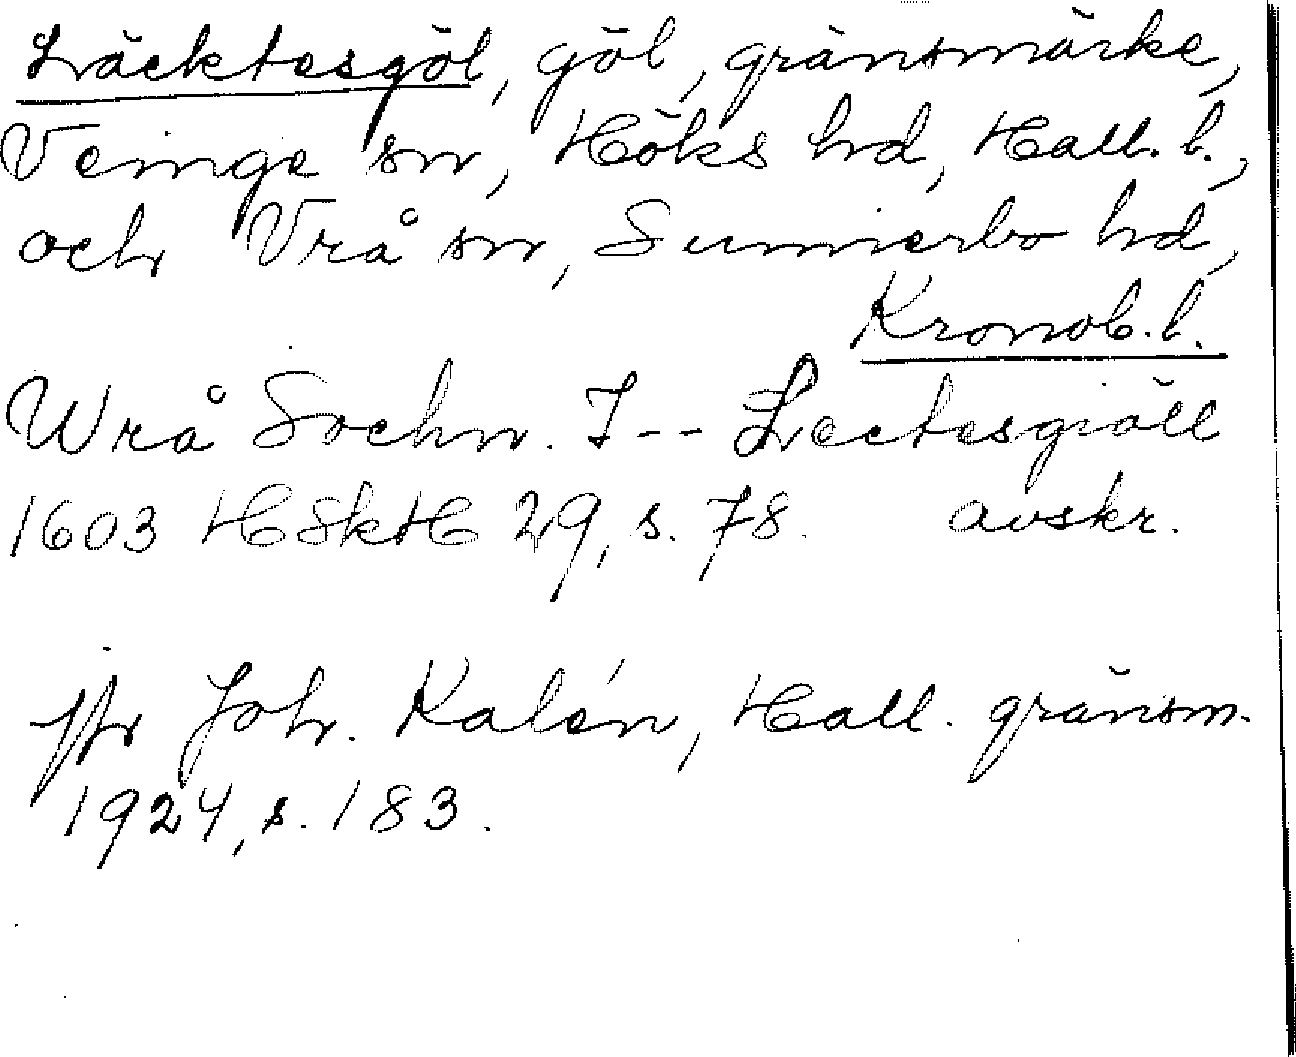 Läcktesgöl, göl, gränsmärke,
Veinge sn, Höks hd, Hall. l.,
och Vrå sn, Sunnerbo hd,
Kronob. l.
Wrå Sochn. I -- Lectesgiöll
1603 HSkH 29, s. 78. avskr.
jfr Joh. Kalén, Hall. gränsm.
1924, s. 183.